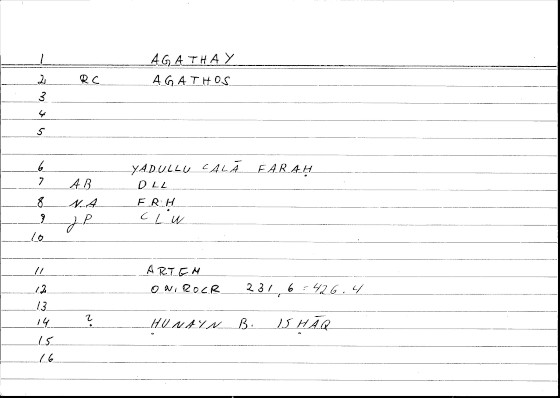 1 AGATHAY
2 RC AGATHOS
3
4
5
6 YADULLU CALĀ FARAḤ
7 AB DLL
8 N.A FRḤ
9 JP CLW
10
11 ARTEM
12 ONIROCR 231,6 = 426.4
13
14 ? ḤUNAYN B. ISḤĀQ
15
16